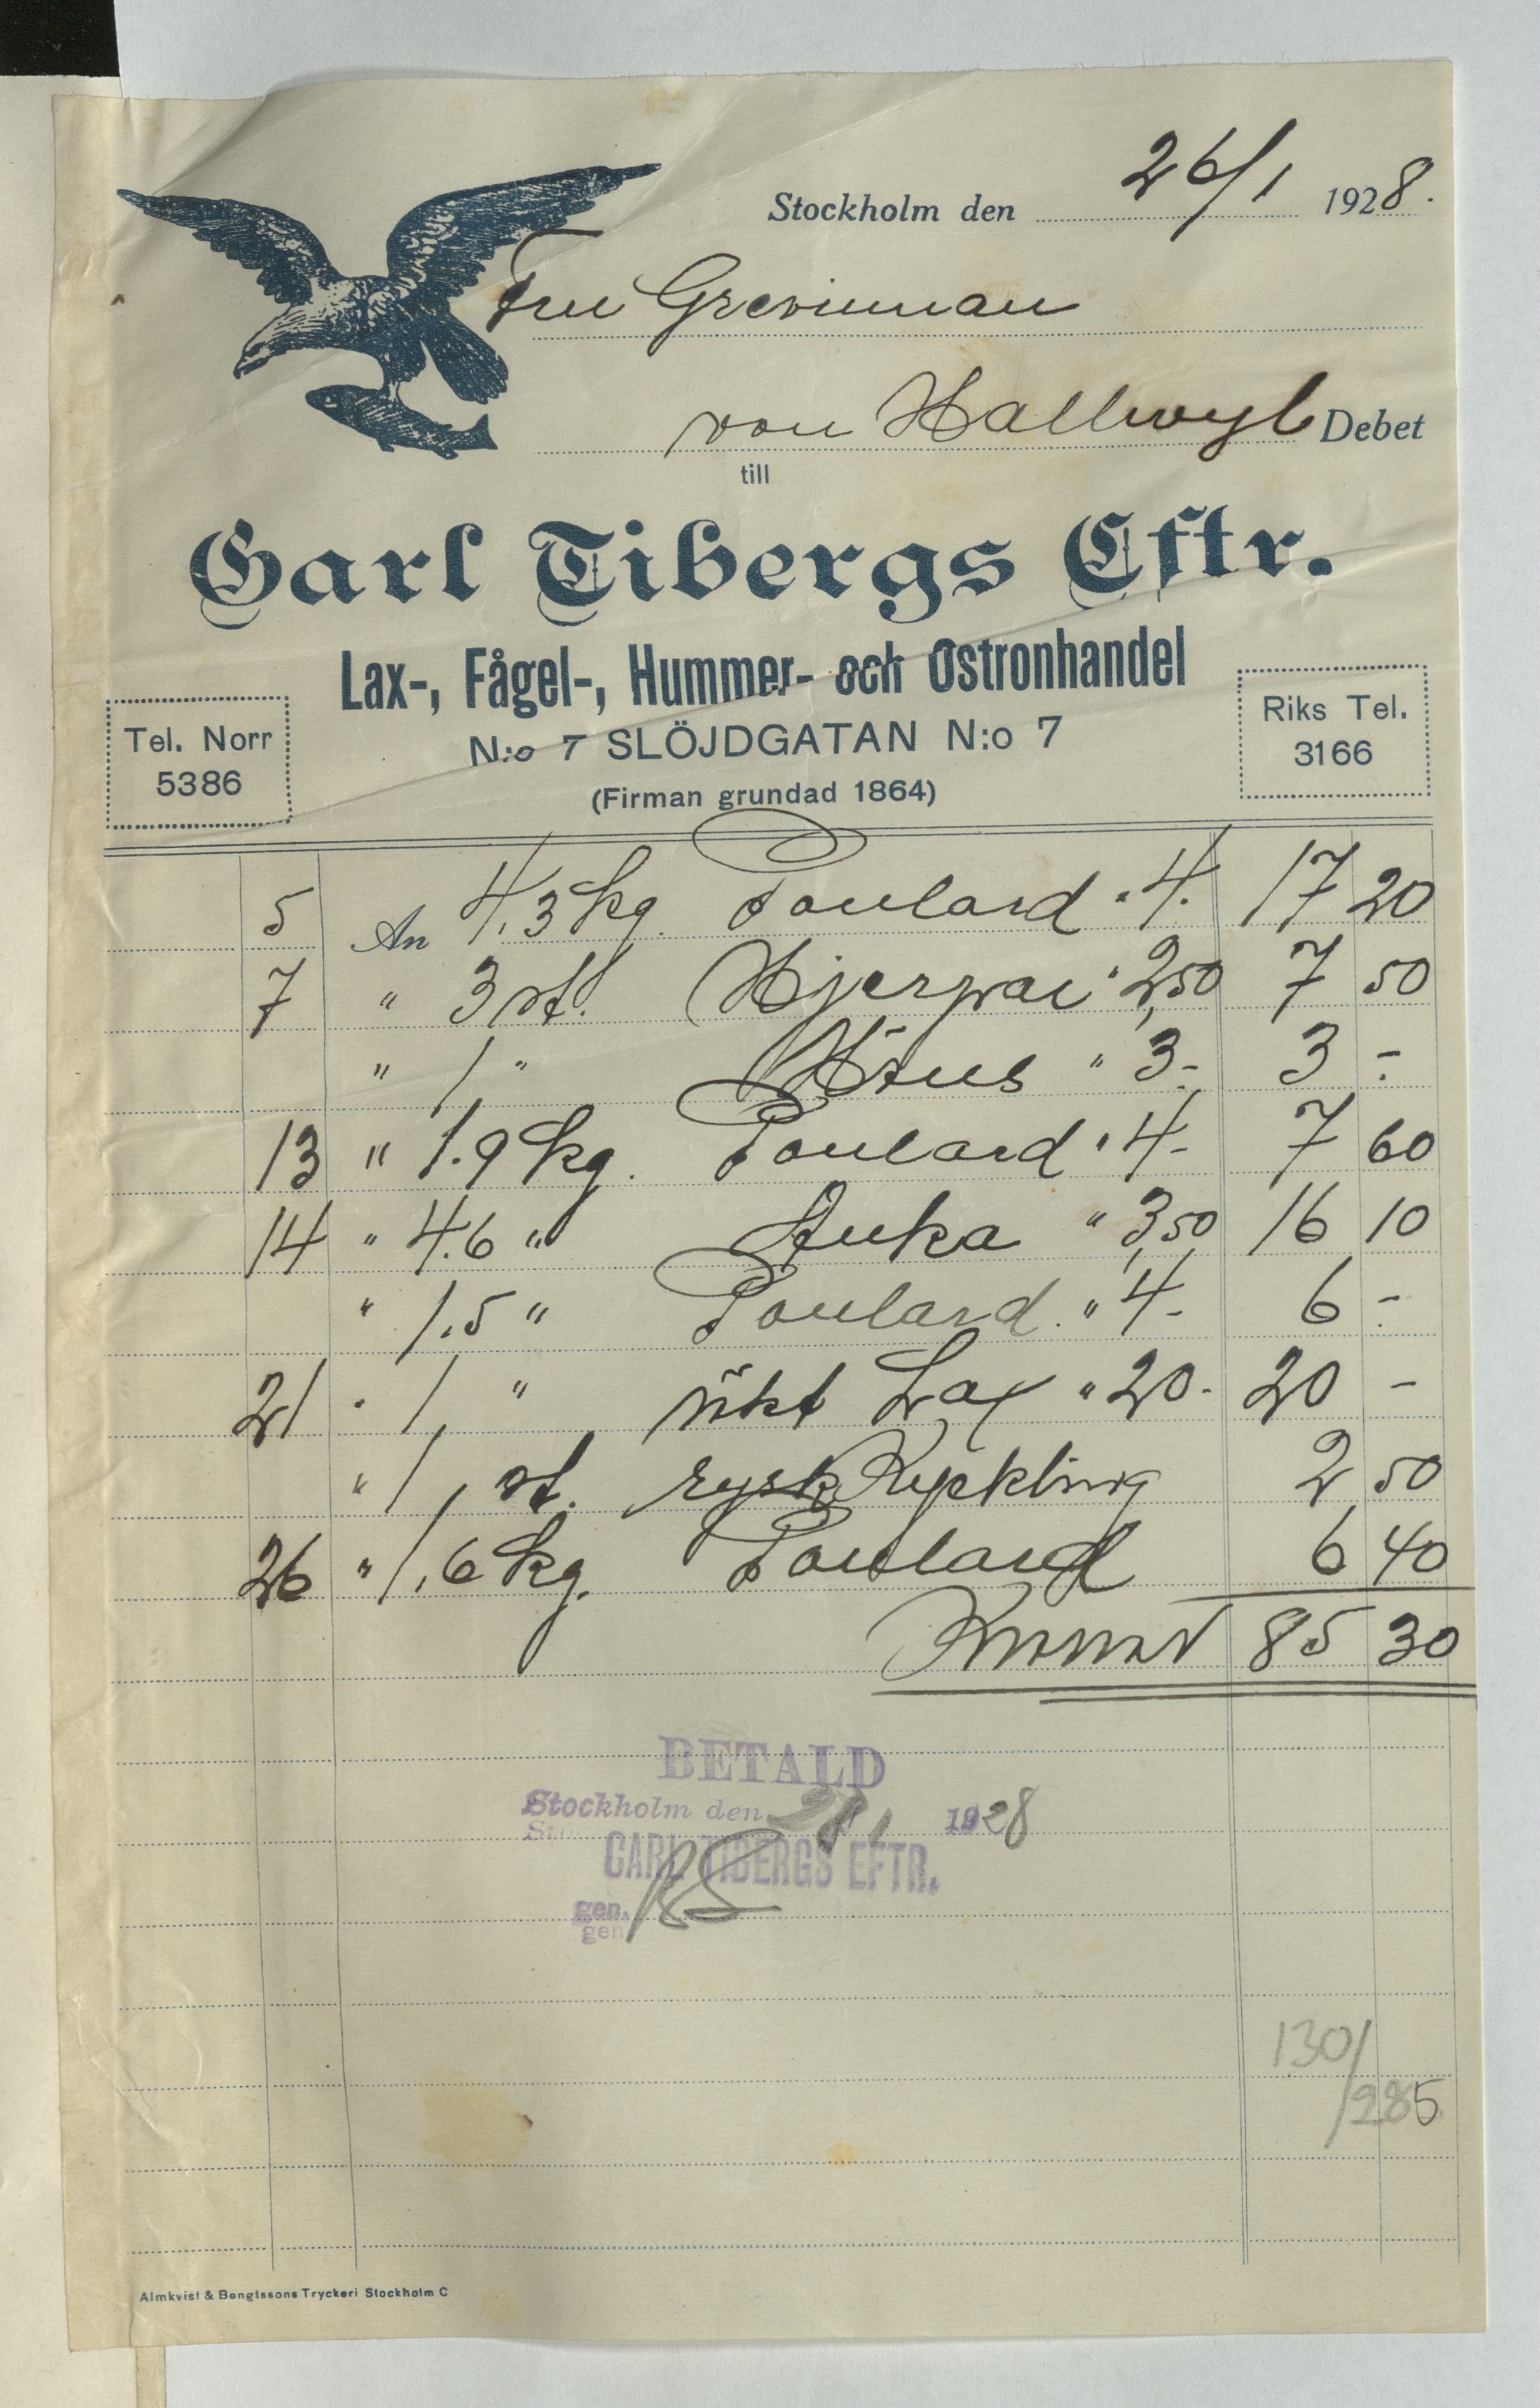 Stockholm den 26/1 1928.
Fru Grevinnan
von Hallwyl Debet
till
Carl Tibergs Eftr.
Lax-, Fågel-, Hummer- och Ostronhandel
Tel. Norr
5386
N:o 7 SLÖJDGATAN N:o 7
Riks Tel.
3166
(Firman grundad 1864)
5 An 4,3 kg. Poulard " 4. 17 20
7 " 3 st. Hjerpar " 2,50 7 50
" 1 " Höns " 3- 3 -
13 " 1.9 kg. Poulard " 4- 7 60
14 " 4.6 " Anka " 3,50 16 10
" 1.5 " Poulard. " 4- 6 -
21 " 1, " rökt Lax " 20- 20 -
" 1, st. rysk Kyckling 2 50
26 " 1,6 kg. Poulard 6 40
Kronor 85 30
BETALD
Stockholm den 28/1 1928
CARL TIBERGS EFTR.
gen.
gen
130/
/285
Almkvist & Bengtssons Tryckeri Stockholm C